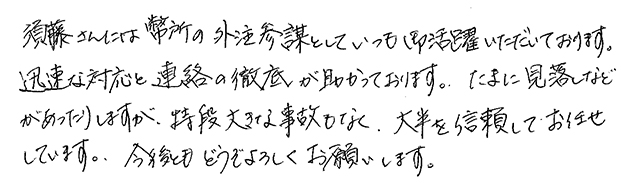 須藤さんには幣所の外注参謀としていつも御活躍いただいております。
迅速な対応と連絡の徹底が助かっております。たまに見落しなど
があったりしますが、特段大きな事故もなく、大半を信頼してお任せ
しています。今後ともどうぞよろしくお願いします。